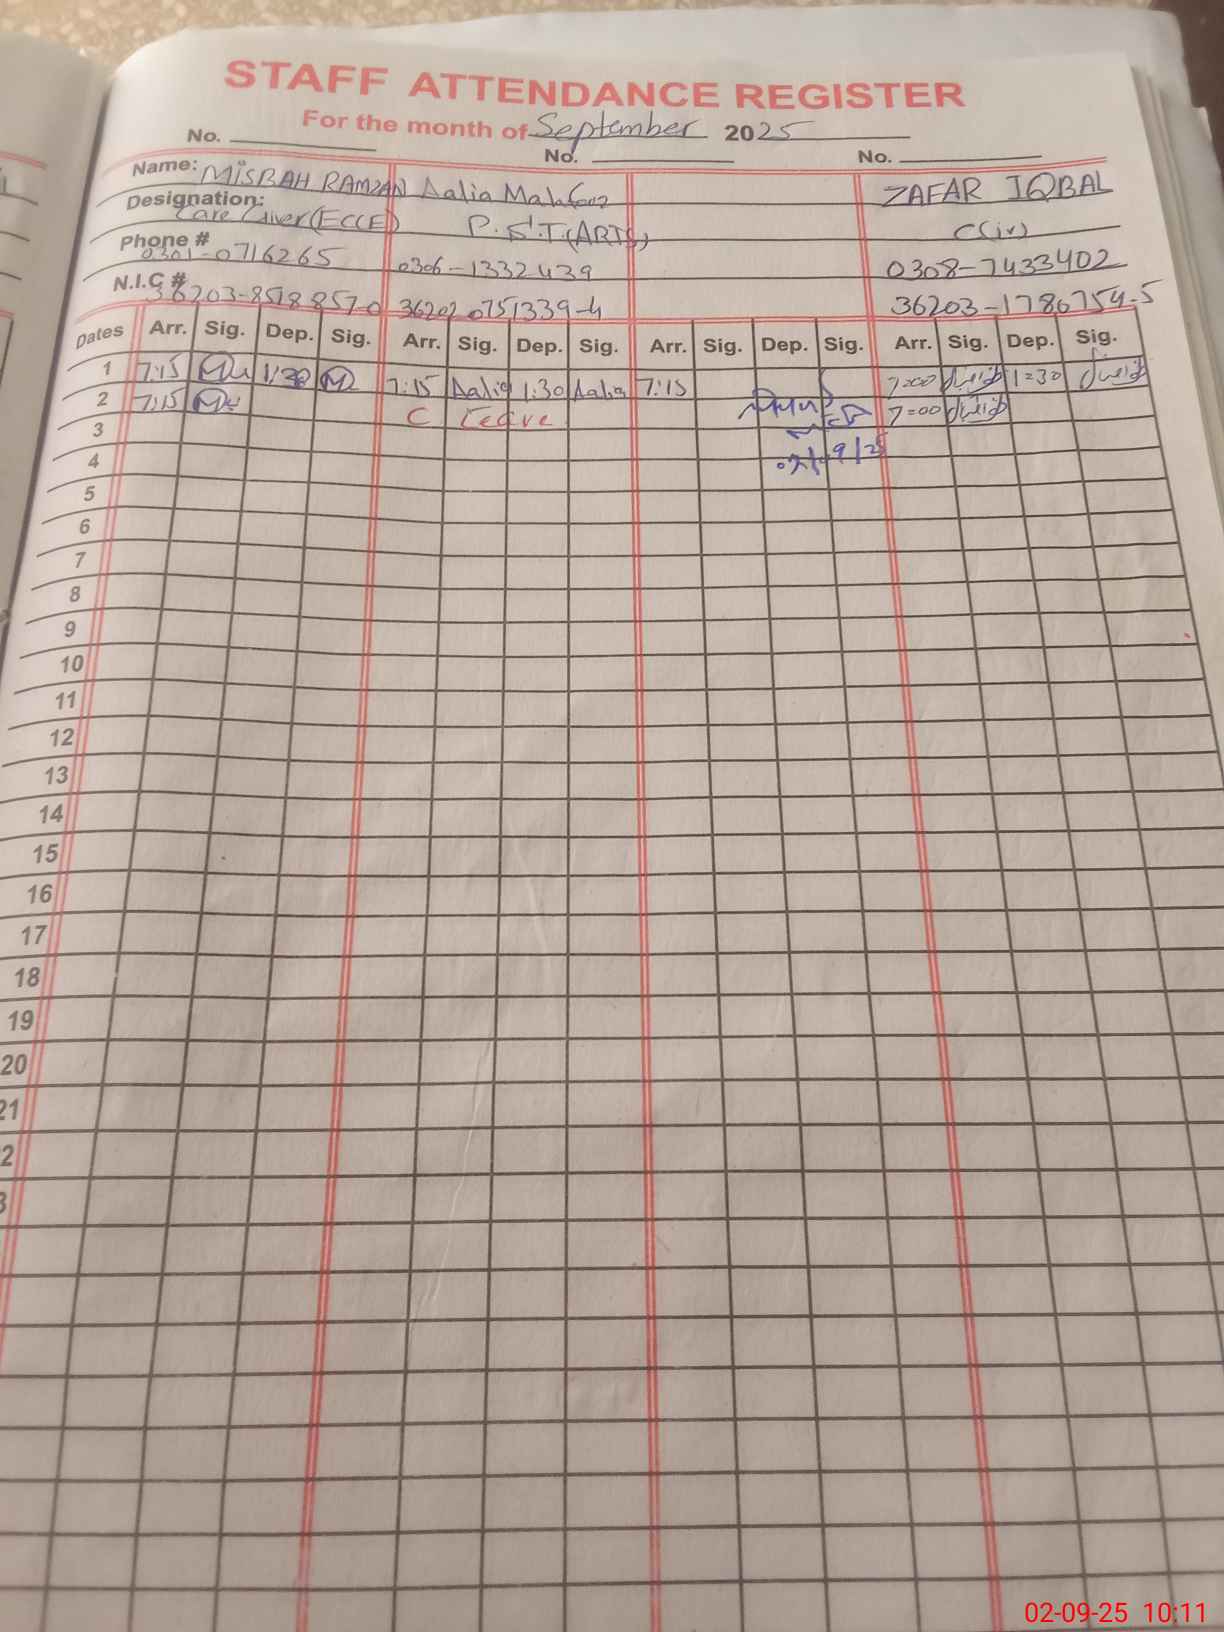 STAFF ATTENDANCE REGISTER
For the month of September 2025
No. No. No.
Name: MISBAH RAMZAN Aalia ZAFAR IQBAL
Designation: Care Giver (ECCE) P.S.T (ARTS) C(iv)
Phone # 0301-0716265 0306-1332439 0308-7433402
N.I.C # 36203-8518857-0 36202 0751339-4 36203-1786754-5
Dates Arr. Sig. Dep. Sig. Arr. Sig. Dep. Sig. Arr. Sig. Dep. Sig. Arr. Sig. Dep. Sig.
1 7:15 1:30 7:15 Aalia 1:30 Aalia 7:15 7=00 1=30
2 7:15 C Leave 7=00
3
4
5
6
7
8
9
10
11
12
13
14
15
16
17
18
19
20
21
2
3
02-09-25 10:11